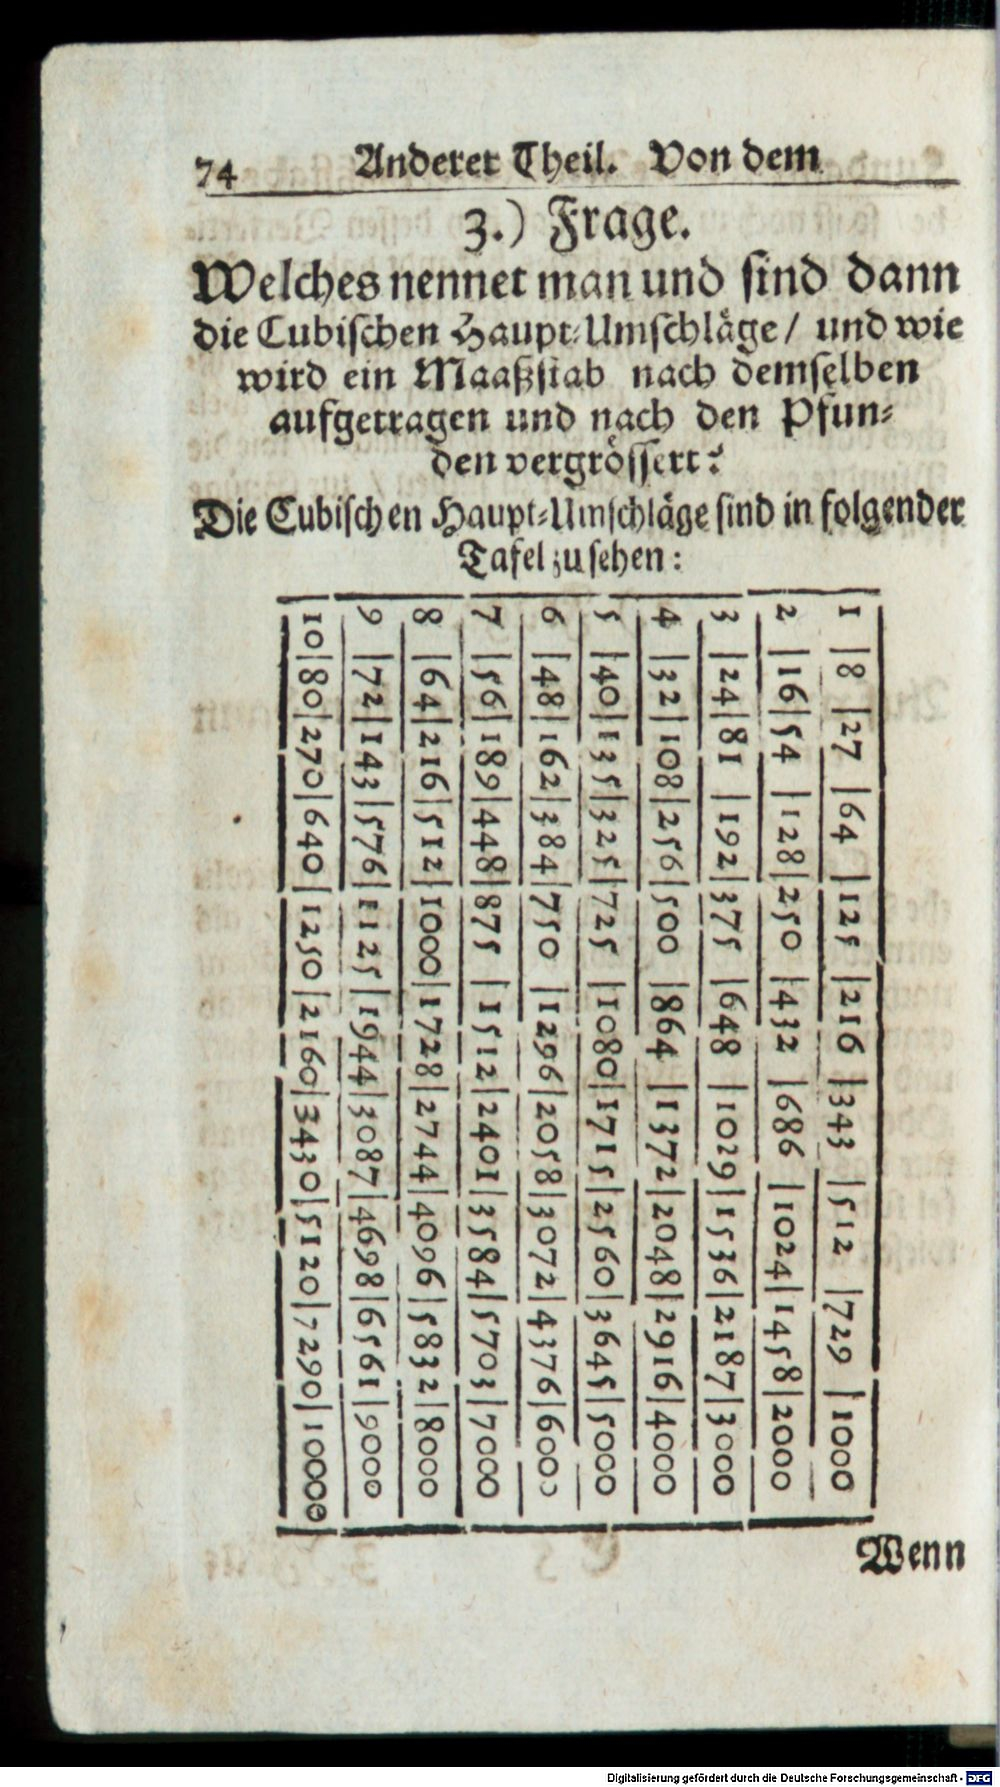 74 Anderer Theil. Von dem
3.) Frage.
Welches nennet man und sind dann
die Cubischen Haupt-Umschläge / und wie
wird ein Maaßstab nach demselben
aufgetragen und nach den Pfun-
den vergrössert?
Die Cubischen Haupt-Umschläge sind in folgender
Tafel zu sehen:
1 | 8 | 27 | 64 | 125 | 216 | 343 | 512 | 729 | 1000
2 | 16 | 54 | 128 | 250 | 432 | 686 | 1024 | 1458 | 2000
3 | 24 | 81 | 192 | 375 | 648 | 1029 | 1536 | 2187 | 3000
4 | 32 | 108 | 256 | 500 | 864 | 1372 | 2048 | 2916 | 4000
5 | 40 | 135 | 325 | 725 | 1080 | 1715 | 2560 | 3645 | 5000
6 | 48 | 162 | 384 | 750 | 1296 | 2058 | 3072 | 4376 | 6000
7 | 56 | 189 | 448 | 875 | 1512 | 2401 | 3584 | 5703 | 7000
8 | 64 | 216 | 512 | 1000 | 1728 | 2744 | 4096 | 5832 | 8000
9 | 72 | 143 | 576 | 1125 | 1944 | 3087 | 4698 | 6561 | 9000
10 | 80 | 270 | 640 | 1250 | 2160 | 3430 | 5120 | 7290 | 10000
Wenn
Digitalisierung gefördert durch die Deutsche Forschungsgemeinschaft - DFG